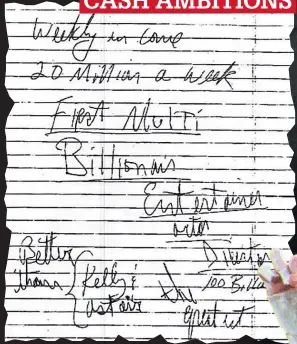 CASH AMBITIONS
Weekly in come
20 Million a week
First Multi
Billionair
Entertainer
actor
Director
Better
than } Kelly &
astair
the
greatest
100 Billion